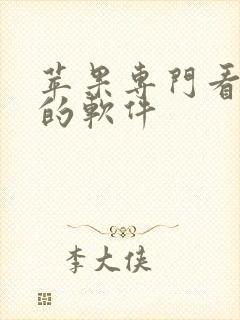 苹果専門看
的軟件
李大侠